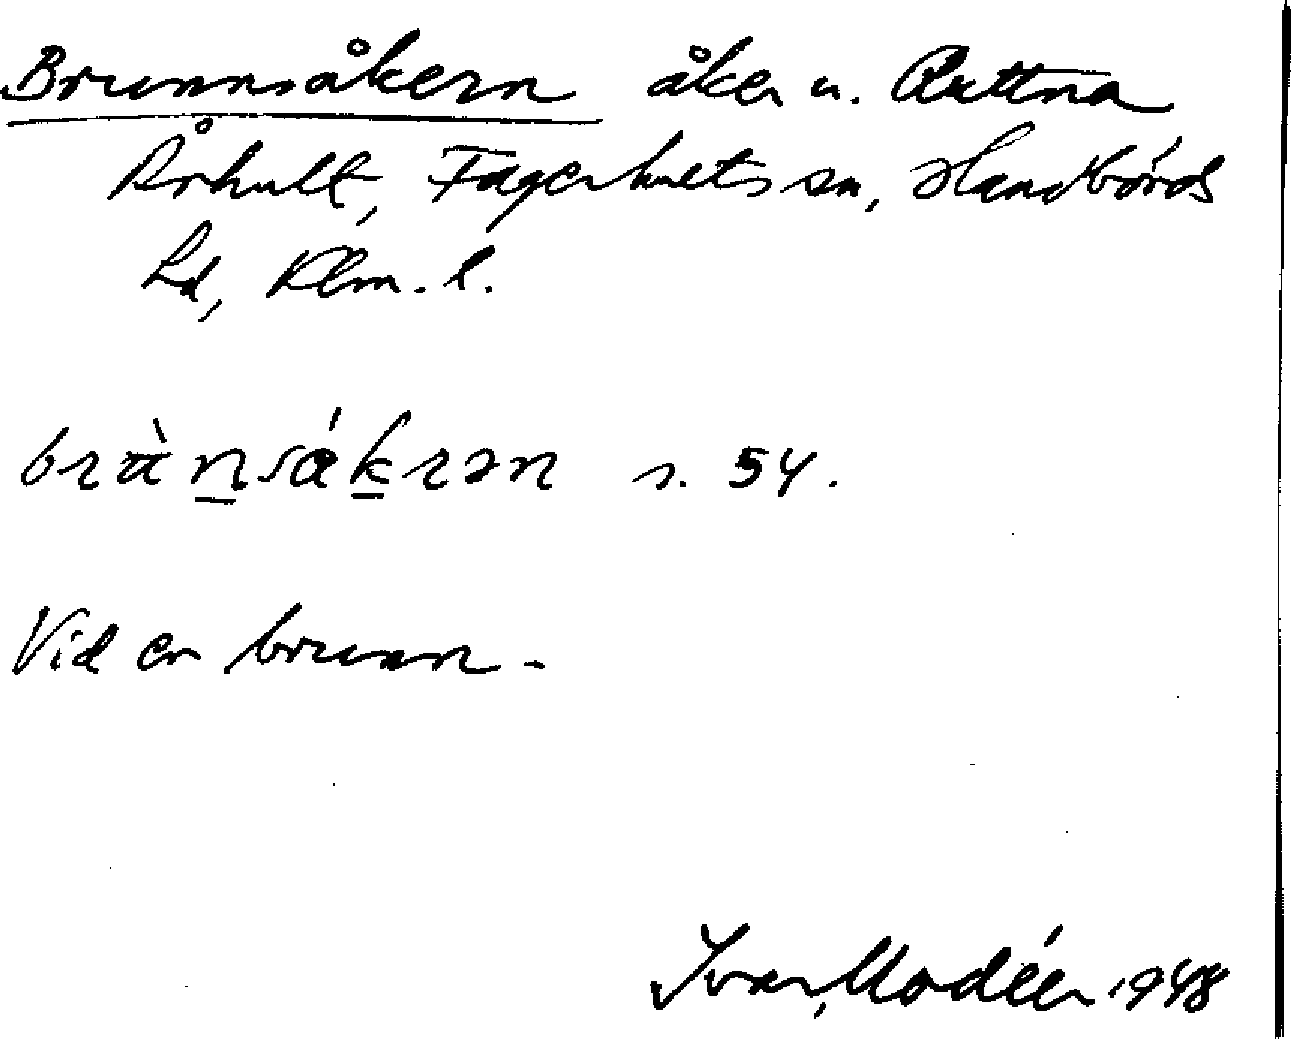 Brunnsåkern åker u. Ruttna
Århult, Fagerhults sn, Handbörds
hd, Klm. l.
brànsákrən s. 54.
Vid en brunn.
Ivar Modéer 1948